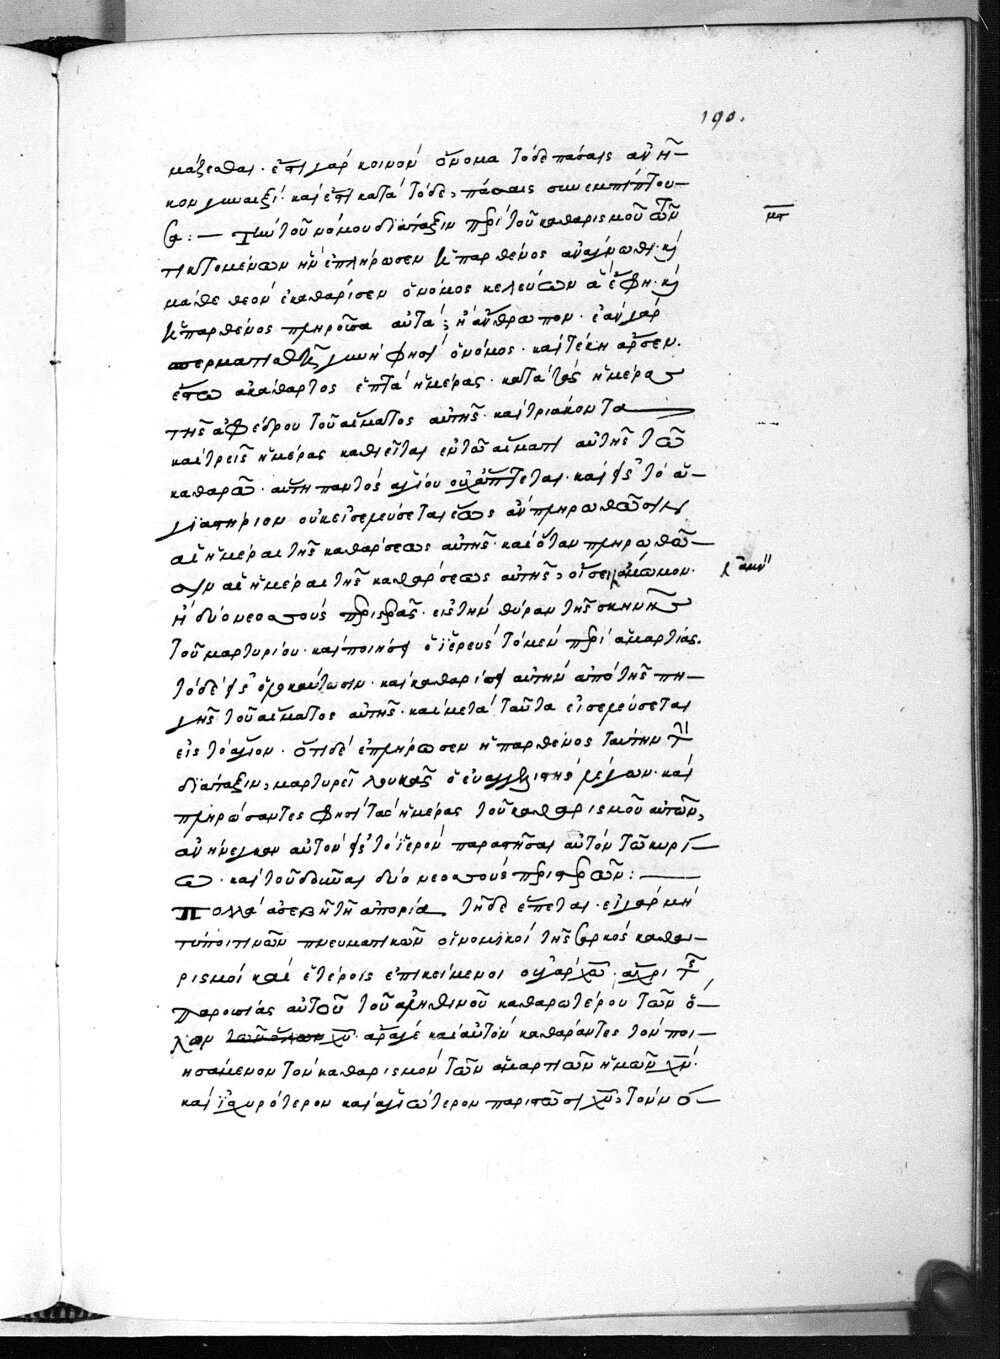 190.
μάζεσθαι· ἔστι γὰρ κοινὸν ὄνομα τόδε πάσαις ἀνῆ—
κον γυναιξί· καὶ ἔστι κατὰ τόδε, πάσαις συνεμπίπτου—
σα :— Τὴν τοῦ νόμου διάταξιν περὶ τοῦ καθαρισμοῦ τῶν
τικτομένων ἣν ἐπλήρωσεν ἡ παρθένος ἀναγνῶθι· καὶ
μάθε θεὸν ἐκαθάρισεν ὁ νόμος κελεύων ἃ ἔφη· καὶ
ἡ παρθένος πληροῦσα αὐτά; ἢ ἄνθρωπον· ἐὰν γὰρ
σπερματισθῇ γυνὴ φησὶ ὁ νόμος· καὶ τέκῃ ἄρσεν·
ἔστω ἀκάθαρτος ἑπτὰ ἡμέρας· κατὰ τὰς ἡμέρας
τῆς ἀφέδρου τοῦ αἵματος αὐτῆς· καὶ τριάκοντα
καὶ τρεῖς ἡμέρας καθιεῖται ἐν τῷ αἵματι αὐτῆς τῷ
καθαρῷ· αὕτη παντὸς ἁγίου οὐχ ἅπτεται· καὶ εἰς τὸ ἁ—
γιαστήριον οὐκ εἰσελεύσεται ἕως ἂν πληρωθῶσιν
αἱ ἡμέραι τῆς καθάρσεως αὐτῆς· καὶ ὅταν πληρωθῶ—
σιν αἱ ἡμέραι τῆς καθάρσεως αὐτῆς, οἴσει ἄμωμον·
ἢ δύο νεοσσοὺς περιστερᾶς· εἰς τὴν θύραν τῆς σκηνῆς
τοῦ μαρτυρίου· καὶ ποιήσει ὁ ἱερεὺς τὸ μὲν περὶ ἁμαρτίας·
τὸ δὲ εἰς ὁλοκαύτωσιν· καὶ καθαρίσει αὐτὴν ἀπὸ τῆς πη—
γῆς τοῦ αἵματος αὐτῆς· καὶ μετὰ ταῦτα εἰσελεύσεται
εἰς τὸ ἅγιον· ὅτι δὲ ἐπλήρωσεν ἡ παρθένος ταύτην τὴν
διάταξιν, μαρτυρεῖ λουκᾶς ὁ εὐαγγελιστὴς λέγων· καὶ
πληρώσαντες φησὶ τὰς ἡμέρας τοῦ καθαρισμοῦ αὐτῶν,
ἀνήνεγκαν αὐτὸν εἰς τὸ ἱερὸν παραστῆσαι αὐτὸν τῷ κυρί—
ῳ· καὶ τοῦ δοῦναι δύο νεοσσοὺς περιστερῶν :—
Πολλὰ ἀσεβῆ τῇ ἀπορίᾳ τῇδε ἕπεται· εἰ γὰρ μὴ
τύποι τινῶν πνευματικῶν οἱ νομικοὶ τῆς σαρκὸς καθα—
ρισμοὶ καὶ ἑτέροις ἐπικείμενοι οὐ γὰρ χ̅ω̅· ἄχρι τῆς
παρουσίας αὐτοῦ τοῦ ἀληθινοῦ καθαρωτέρου τῶν ὅ—
λων τῶν ὅλων χ̅υ̅· ἆρά γε καὶ αὐτὸν καθάραντες τὸν ποι—
ησάμενον τὸν καθαρισμὸν τῶν ἁμαρτιῶν ἡμῶν χ̅ν̅·
καὶ ἰσχυρότερον καὶ ἁγιώτερον παριστῶσι χ̅υ̅, τὸν νό—